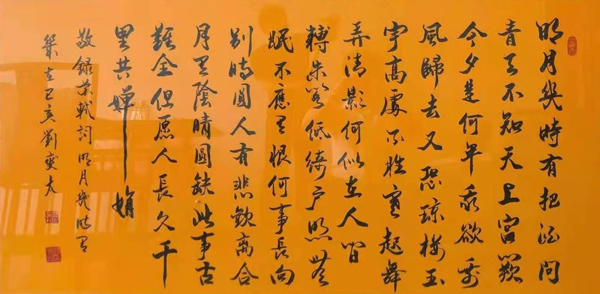 明月幾時有把酒问
青天不知天上宫闕
今夕是何年我欲乘
風歸去又恐瓊樓玉
宇高處不胜寒起舞
弄清影何似在人间
轉朱阁低绮户照無
眠不應有恨何事長向
别時圆人有悲歡離合
月有陰晴圆缺此事古
難全但愿人長久千
里共嬋娟
敬録苏軾詞明月幾时有
歲在己亥劉